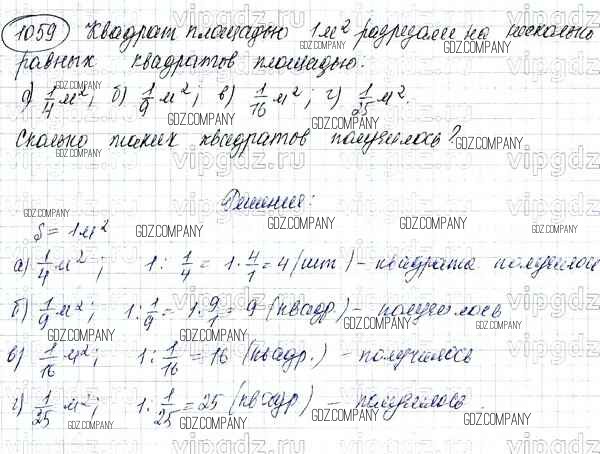 1059 Квадрат площадью 1м² разрезали на несколько
равных квадратов площадью:
а) 1/4 м²; б) 1/9 м²; в) 1/16 м²; г) 1/25 м².
Сколько таких квадратов получилось?
Решение:
S = 1м²
а) 1/4 м²; 1 : 1/4 = 1 · 4/1 = 4 (шт) – квадрата получилось
б) 1/9 м²; 1 : 1/9 = 1 · 9/1 = 9 (квадр) – получилось
в) 1/16 м²; 1 : 1/16 = 16 (квадр.) – получилось
г) 1/25 м²; 1 : 1/25 = 25 (квадр) – получилось
GDZ.COMPANY
vipgdz.com